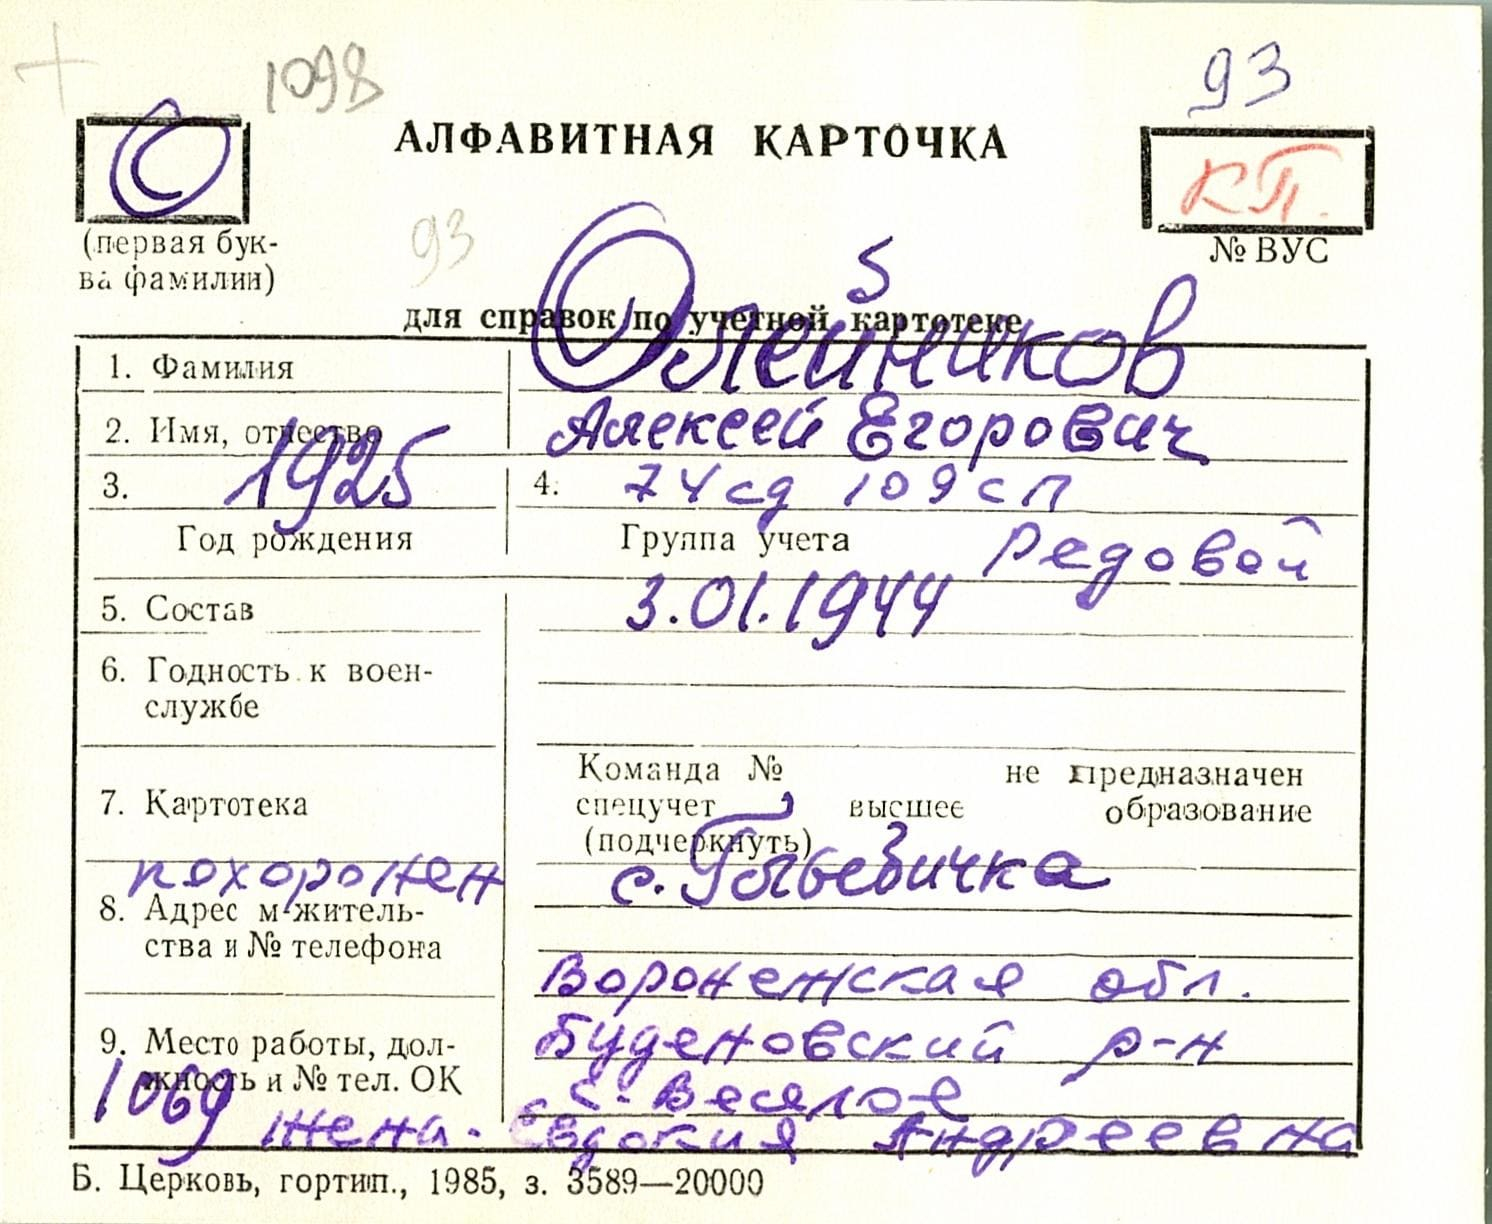 1098
93
О
АЛФАВИТНАЯ КАРТОЧКА
КП.
(первая бук-
ва фамилии)
№ ВУС
93
5
для справок по учетной картотеке
1. Фамилия Олейников
2. Имя, отчество Алексей Егорович
3. 1925 4. 74 сд 109 сп
Год рождения Группа учета Редовой
5. Состав 3.01.1944
6. Годность к воен-
службе
Команда № не предназначен
7. Картотека спецучет высшее образование
(подчеркнуть)
похоронен с.
8. Адрес м-житель-
ства и № телефона
Воронежская обл.
9. Место работы, дол- Буденовский р-н
жность и № тел. ОК с. Веселое
1069 жена - Евдокия Андреевна
Б. Церковь, гортип., 1985, з. 3589—20000